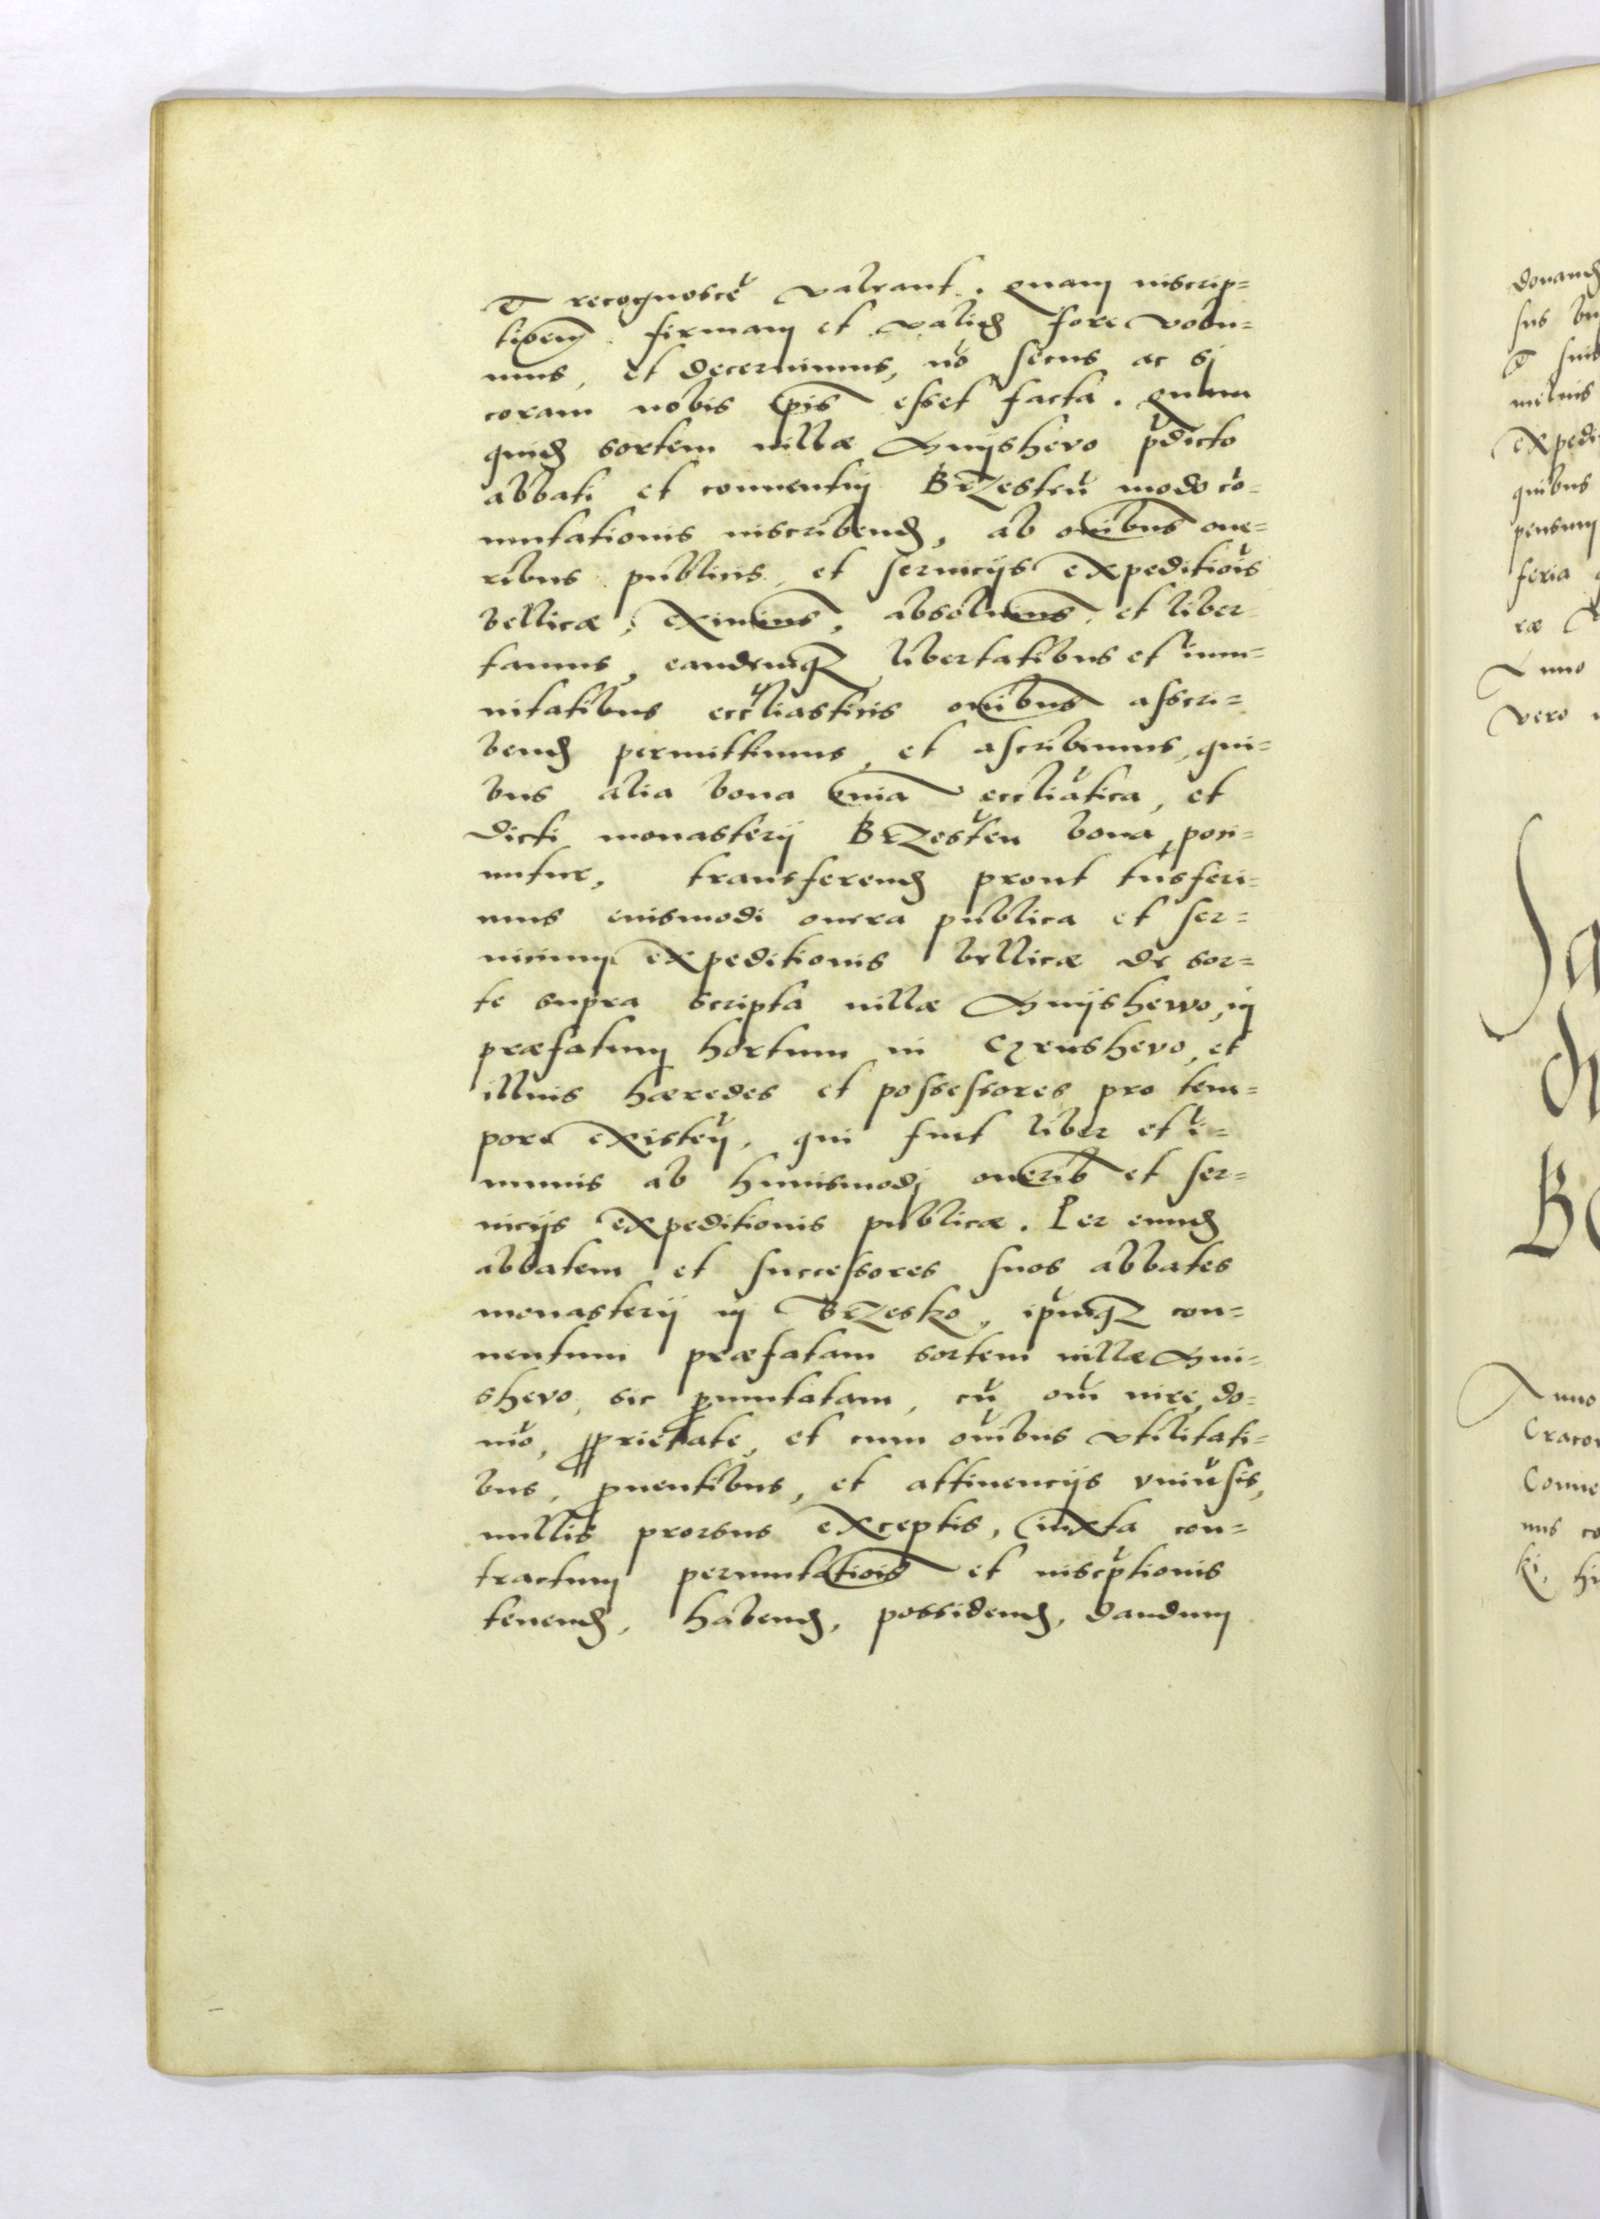 et recognoscē valeant. quam inscrip=
tioem firmam et valid fore volu=
mus, et decernimus, nō secus ac si
coram nobis ipis esset facta. quam
quid sortem villæ Gnijshevo pdicto
abbati et conuentuj Brzesteñ modo cō=
mutationis inscribend, ab omibus one=
ribus publicis, et seruicijs expeditiois
bellicæ, eximims, absoluims, et liber=
tamus, eandemq libertatibus et immu=
nitatibus eccliasticis omibus asscri=
bend permittimus, et ascribimus, qui=
bus alia bona omia eccliastica, et
dicti monasterij Brzesteñ bona, poti=
untur, transferend prout tnsferi=
mus eiusmodi onera publica et ser=
uicium expeditionis bellicæ de sor=
te supra scripta villæ Gnijshewo, in
præfatum hortum in Czrushevo, et
illius hæredes et possessores pro tem=
pore existeñ, qui fuit liber et i=
munis ab huiusmodi onerib et ser=
uicijs expeditionis publicæ. Per eund
abbatem et successores suos abbates
monasterij in Brzesko, ipmq con=
uentum præfatam sortem villæ Gni=
shevo, sic pmutatam, cū omi iure, do=
nio, pprietate, et cum omibus vtilitati=
bus, puentibus, et attinencijs vniusis,
nullis prorsus exceptis, iuxta con=
tractum permutatiois et inscptionis
tenend, habend, possidend, dandum
donand
sus
et suis
melius
expedi
quibus
pensum
feria
ræ
Anno
vero
Ja
Anno
Cracov
Conue
nus co
ki, hi